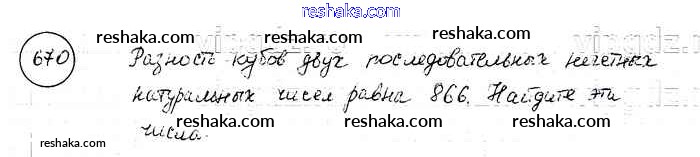 reshaka.com
670 Разность кубов двух последовательных нечетных
reshaka.com reshaka.com reshaka.com
натуральных чисел равна 866. Найдите эти
reshaka.com reshaka.com reshaka.com reshaka.com
числа.